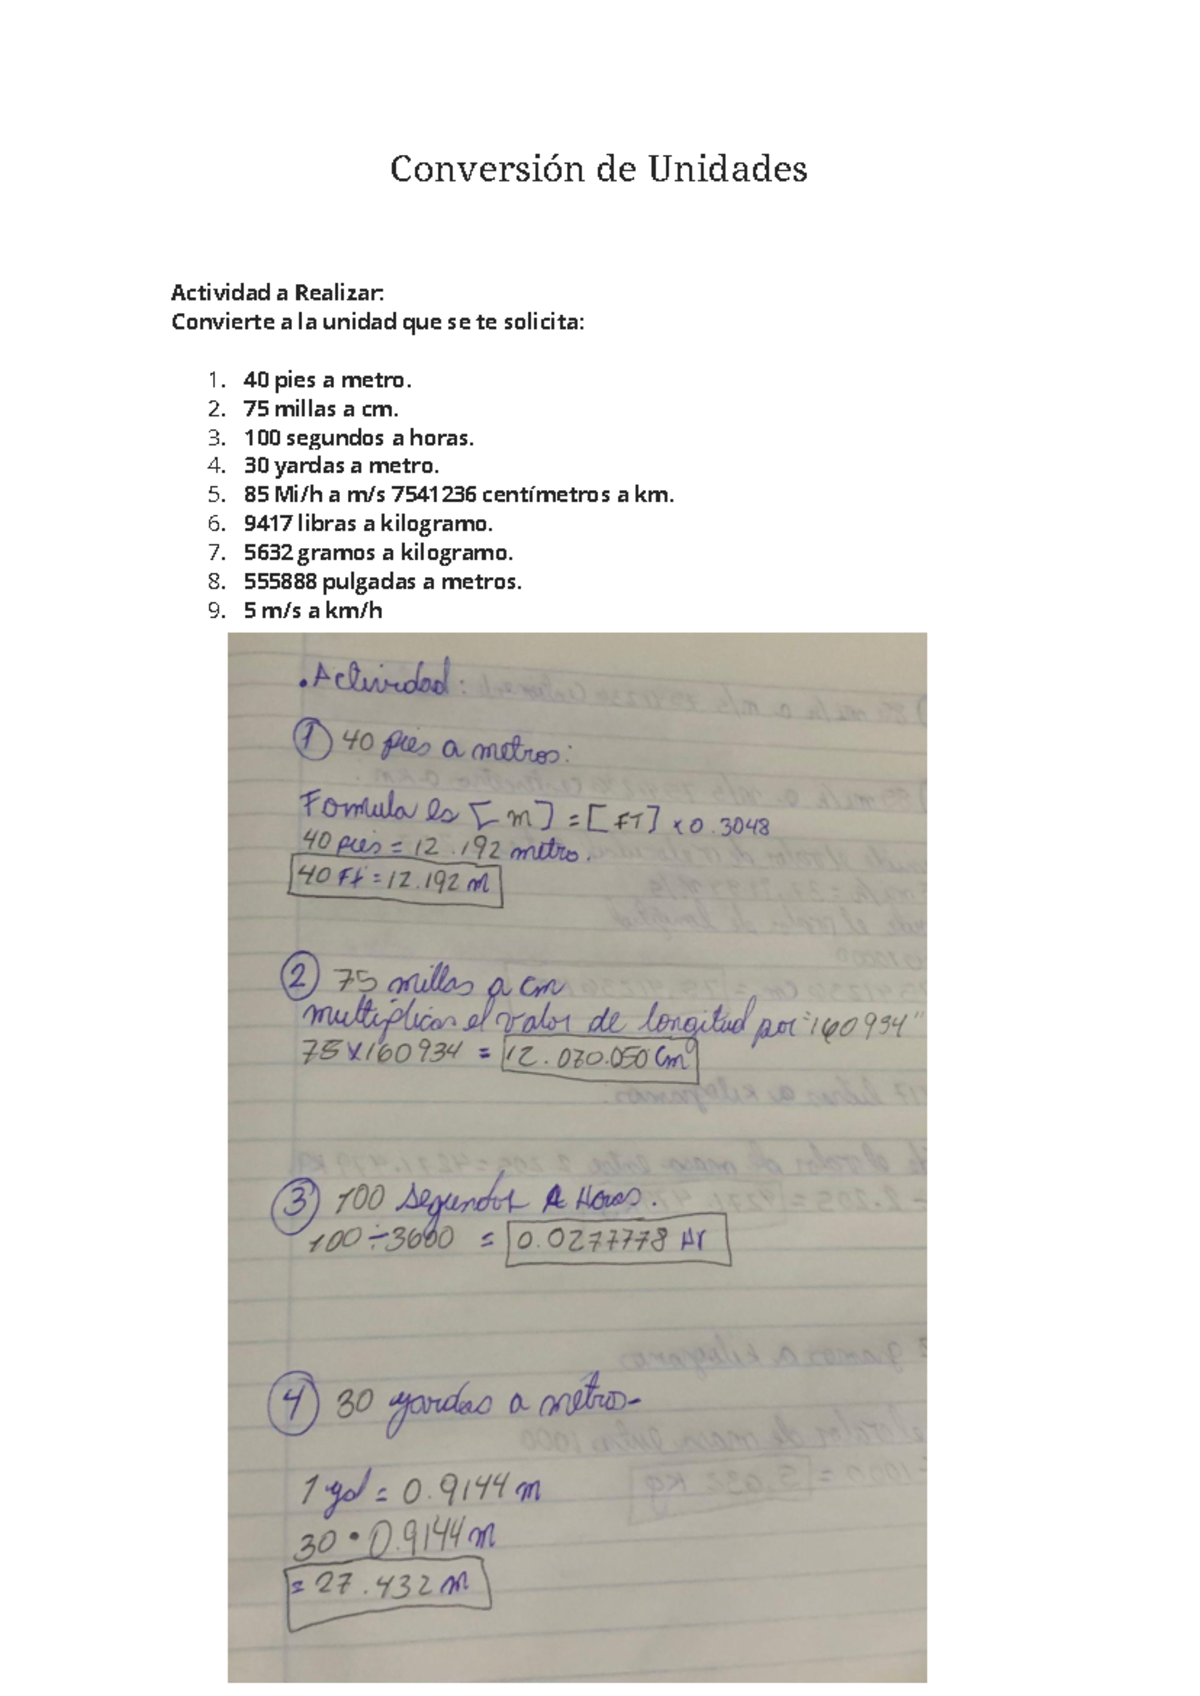 Conversión de Unidades
Actividad a Realizar:
Convierte a la unidad que se te solicita:
1. 40 pies a metro.
2. 75 millas a cm.
3. 100 segundos a horas.
4. 30 yardas a metro.
5. 85 Mi/h a m/s 7541236 centímetros a km.
6. 9417 libras a kilogramo.
7. 5632 gramos a kilogramo.
8. 555888 pulgadas a metros.
9. 5 m/s a km/h
. Actividad:
① 40 pies a metros:
Fomula es [m] = [FT] x 0.3048
40 pies = 12.192 metro.
40 Ft = 12.192 m
② 75 millas a cm
multiplicas el valor de longitud por "160934"
75 x 160934 = 12.070.050 Cm
③ 100 segundos A Horas.
100 ÷ 3600 = 0.0277778 Hr
④ 30 yardas a metro-
1 yd = 0.9144 m
30 • 0.9144 m
= 27.432 m